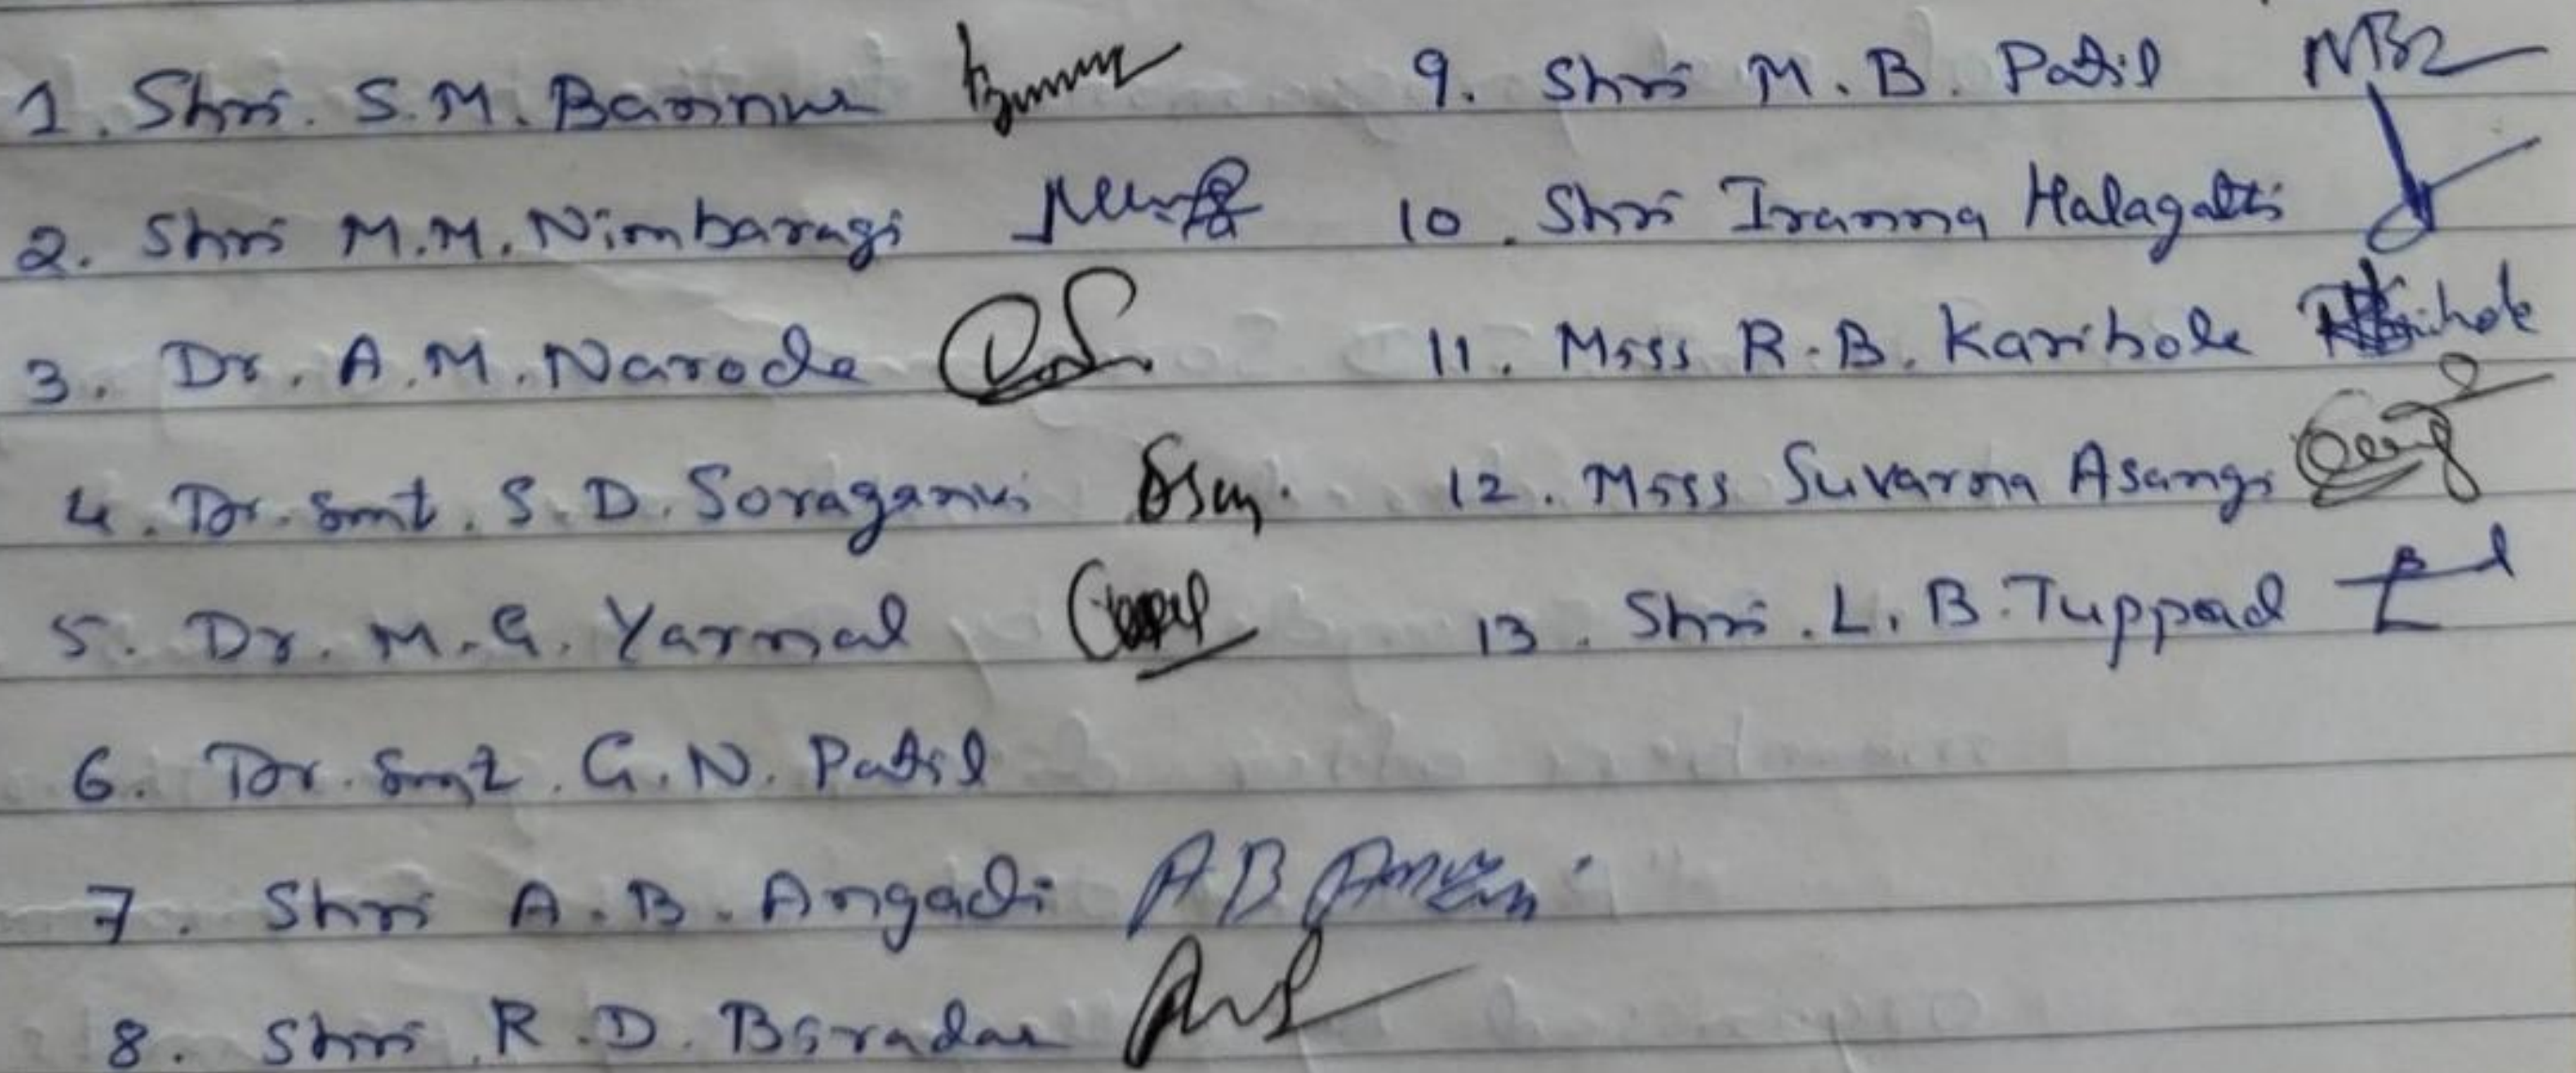 1. Shri. S.M.
2. Shri M.M. Nimbaragi
3. Dr. A.M. Narode
4. Dr. Smt. S.D. Soraganvi
5. Dr. M.G. Yarnal
6. Dr. Smt. G.N. Patil
7. Shri A.B. Angadi A B
8. Shri R.D. Biradar
9. Shri M.B. Patil
10. Shri Iranna Halagatti
11. Miss R.B. Karibole
12. Miss Suvarna Asangi
13. Shri. L.B. Tuppad